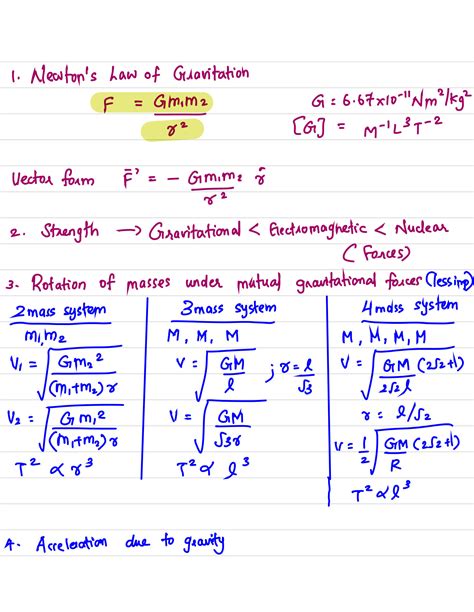 1. Newton's Law of Gravitation
F = Gm₁m₂/r²
G = 6.67×10⁻¹¹ Nm²/kg²
[G] = M⁻¹L³T⁻²
Vector form F⃗ = - Gm₁m₂/r² r̂
2. Strength → Gravitational < Electromagnetic < Nuclear
(Forces)
3. Rotation of masses under mutual gravitational forces (less imp)
2 mass system
m₁, m₂
V₁ = √(Gm₂²/(m₁+m₂)r)
V₂ = √(Gm₁²/(m₁+m₂)r)
T² ∝ r³
3 mass system
M, M, M
V = √(GM/l) ; r = l/√3
V = √(GM/√3r)
T² ∝ l³
4 mass system
M, M, M, M
V = √(GM/2√2l (2√2+1))
r = l/√2
V = 1/2 √(GM/R (2√2+1))
T² ∝ l³
4. Acceleration due to gravity